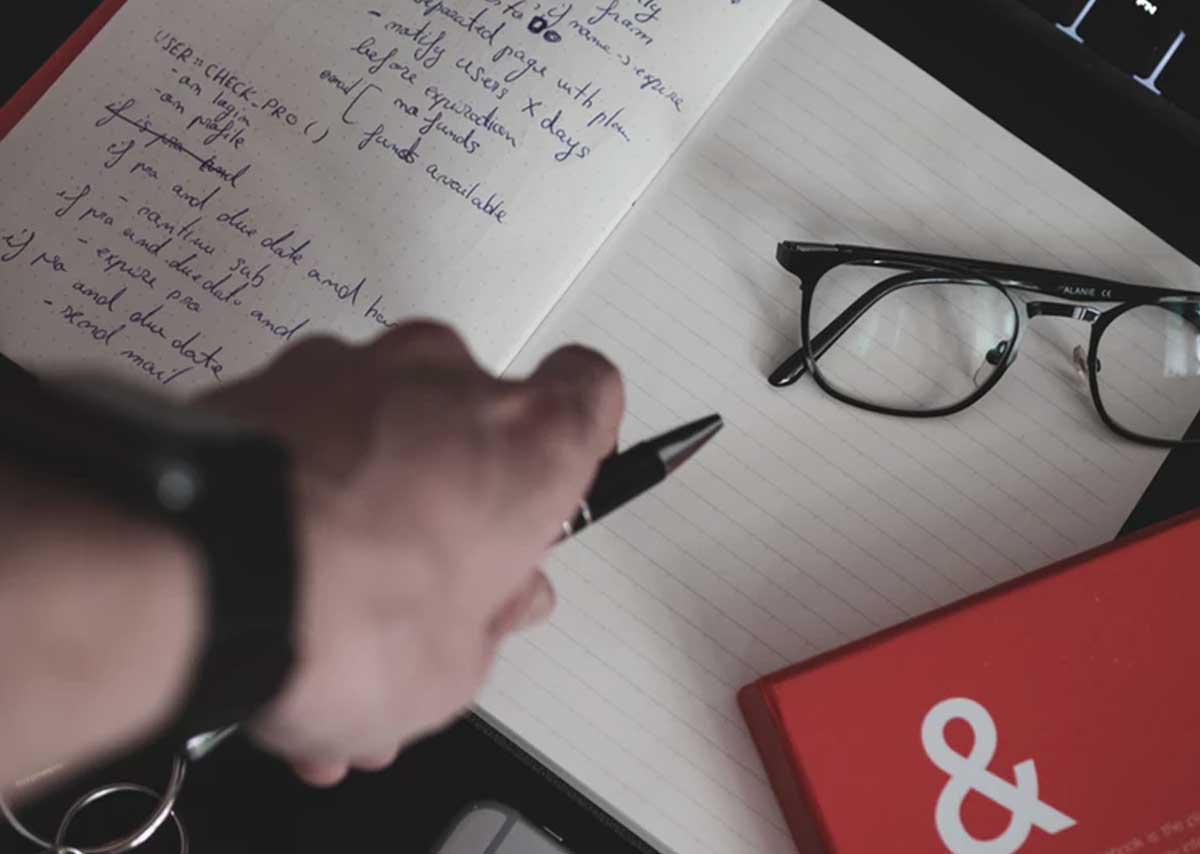 from
if name → expire
separated page with plan
- notify users X days
before expiration
email [ no funds
funds available
USER::CHECK_PRO()
- on login
- on profile
if is pro and
if pro and due date and
- continue sub
if pro and due date and
- expire pro
if pro and due date
- send mail
ALANIE CE
&